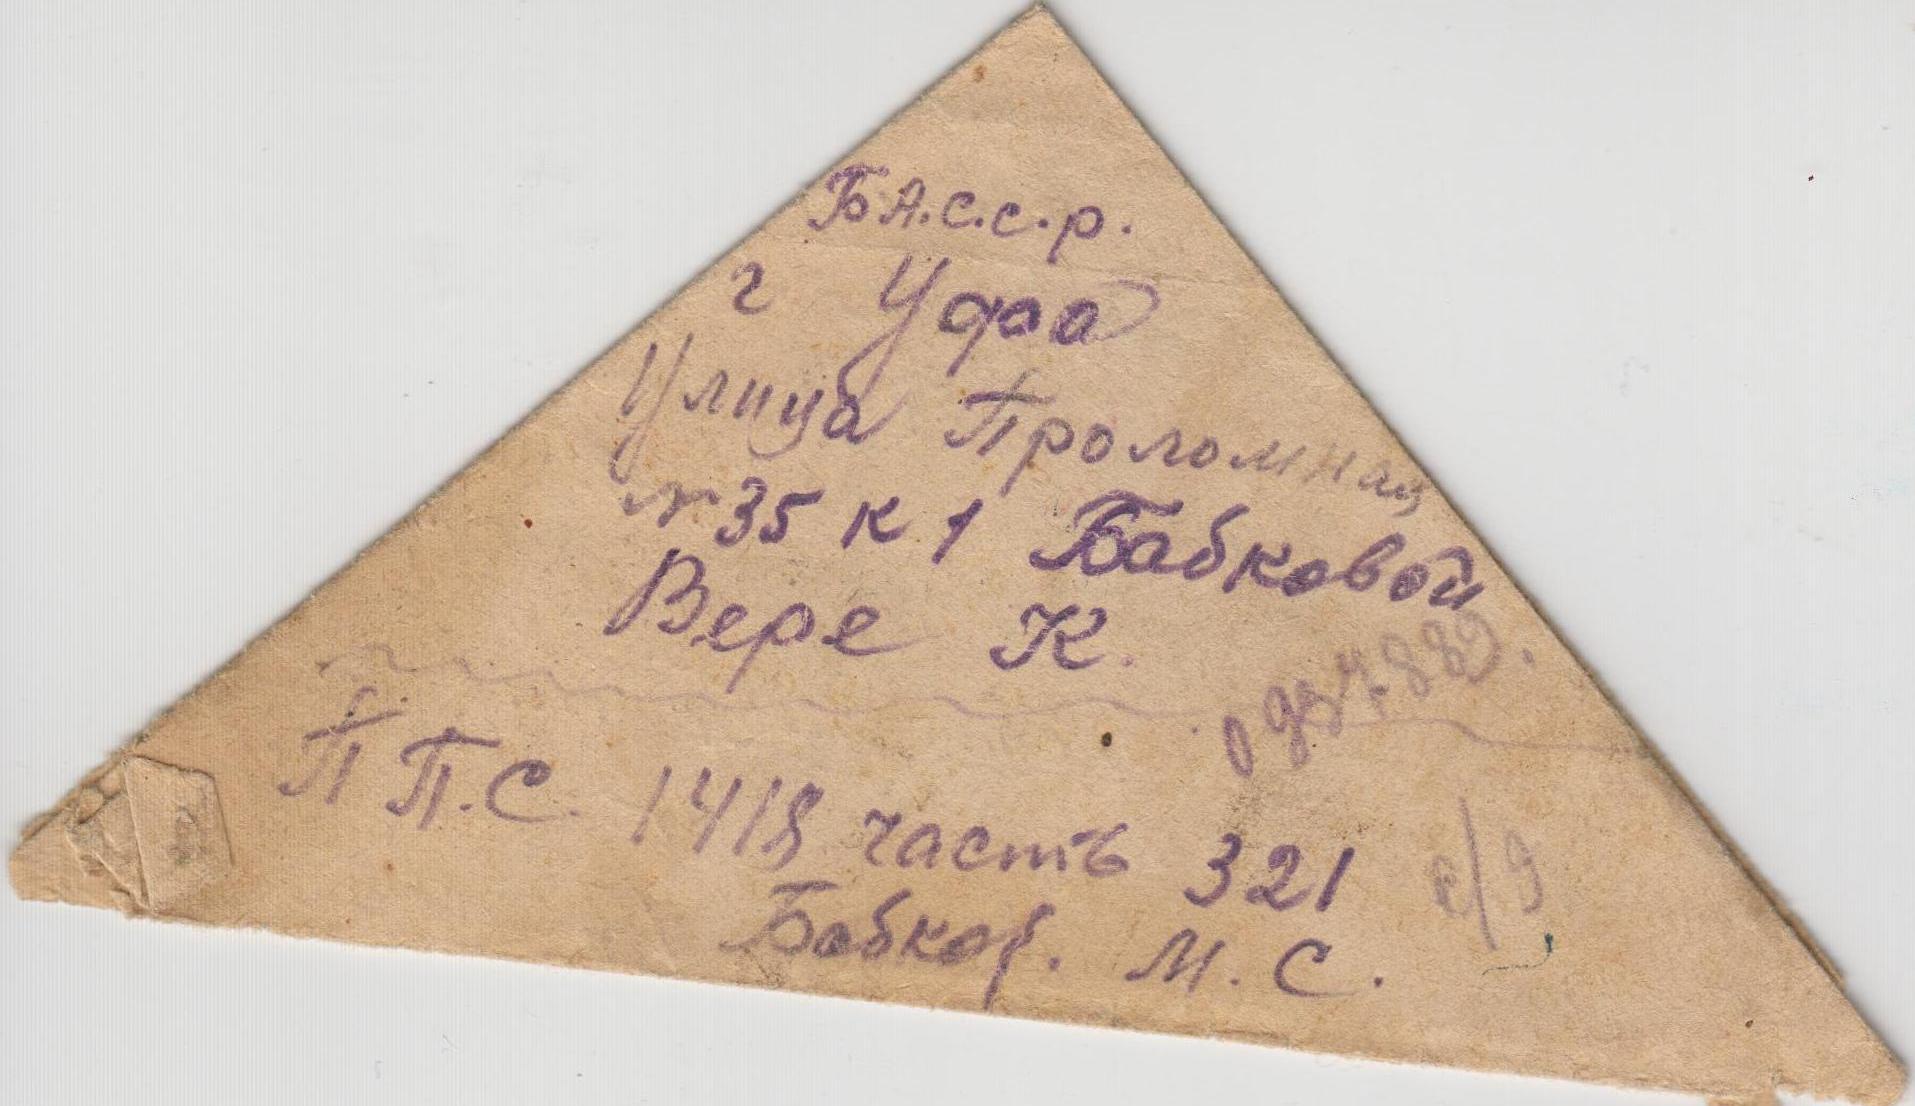 БА.С.С.Р.
г Уфа
Улица Проломная
№ 35 к 1 Бабковой
Вере К.
П П.С. 1418 часть 321
Бабков. М. С.